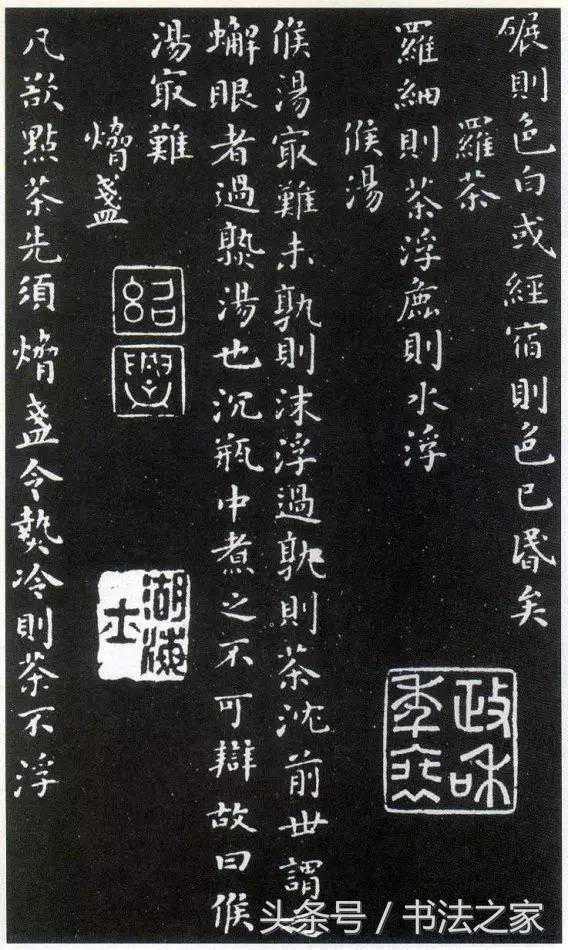 碾則色白或經宿則色已昬矣
羅茶
羅細則茶浮麁則水浮
候湯
候湯冣難未孰則沫浮過孰則茶沈前世謂之
蠏眼者過熟湯也沉瓶中煮之不可辯故曰候
湯冣難
熁盞
凡欲點茶先須熁盞令熱冷則茶不浮
政和
紹興
湖海
士
头条号 / 书法之家